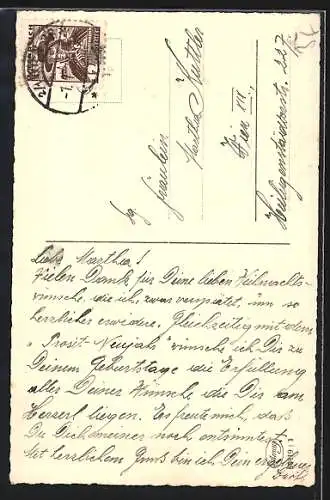 Fräulein
Martha
Wien III.
227
Liebe Martha!
Vielen Dank für Deine lieben Weihnachts-
wünsche, die ich, zwar verspätet, um so
herzlicher erwidere. Gleichzeitig mit dem
"Prosit-Neujahr" wünsche ich Dir zu
Deinem Geburtstage die Erfüllung
aller Deiner Wünsche die Dir am
Herzerl liegen. Es freute mich, daß
Du Dich meiner noch entsinnst.
Mit herzlichem Gruß bin ich Dein ergebener